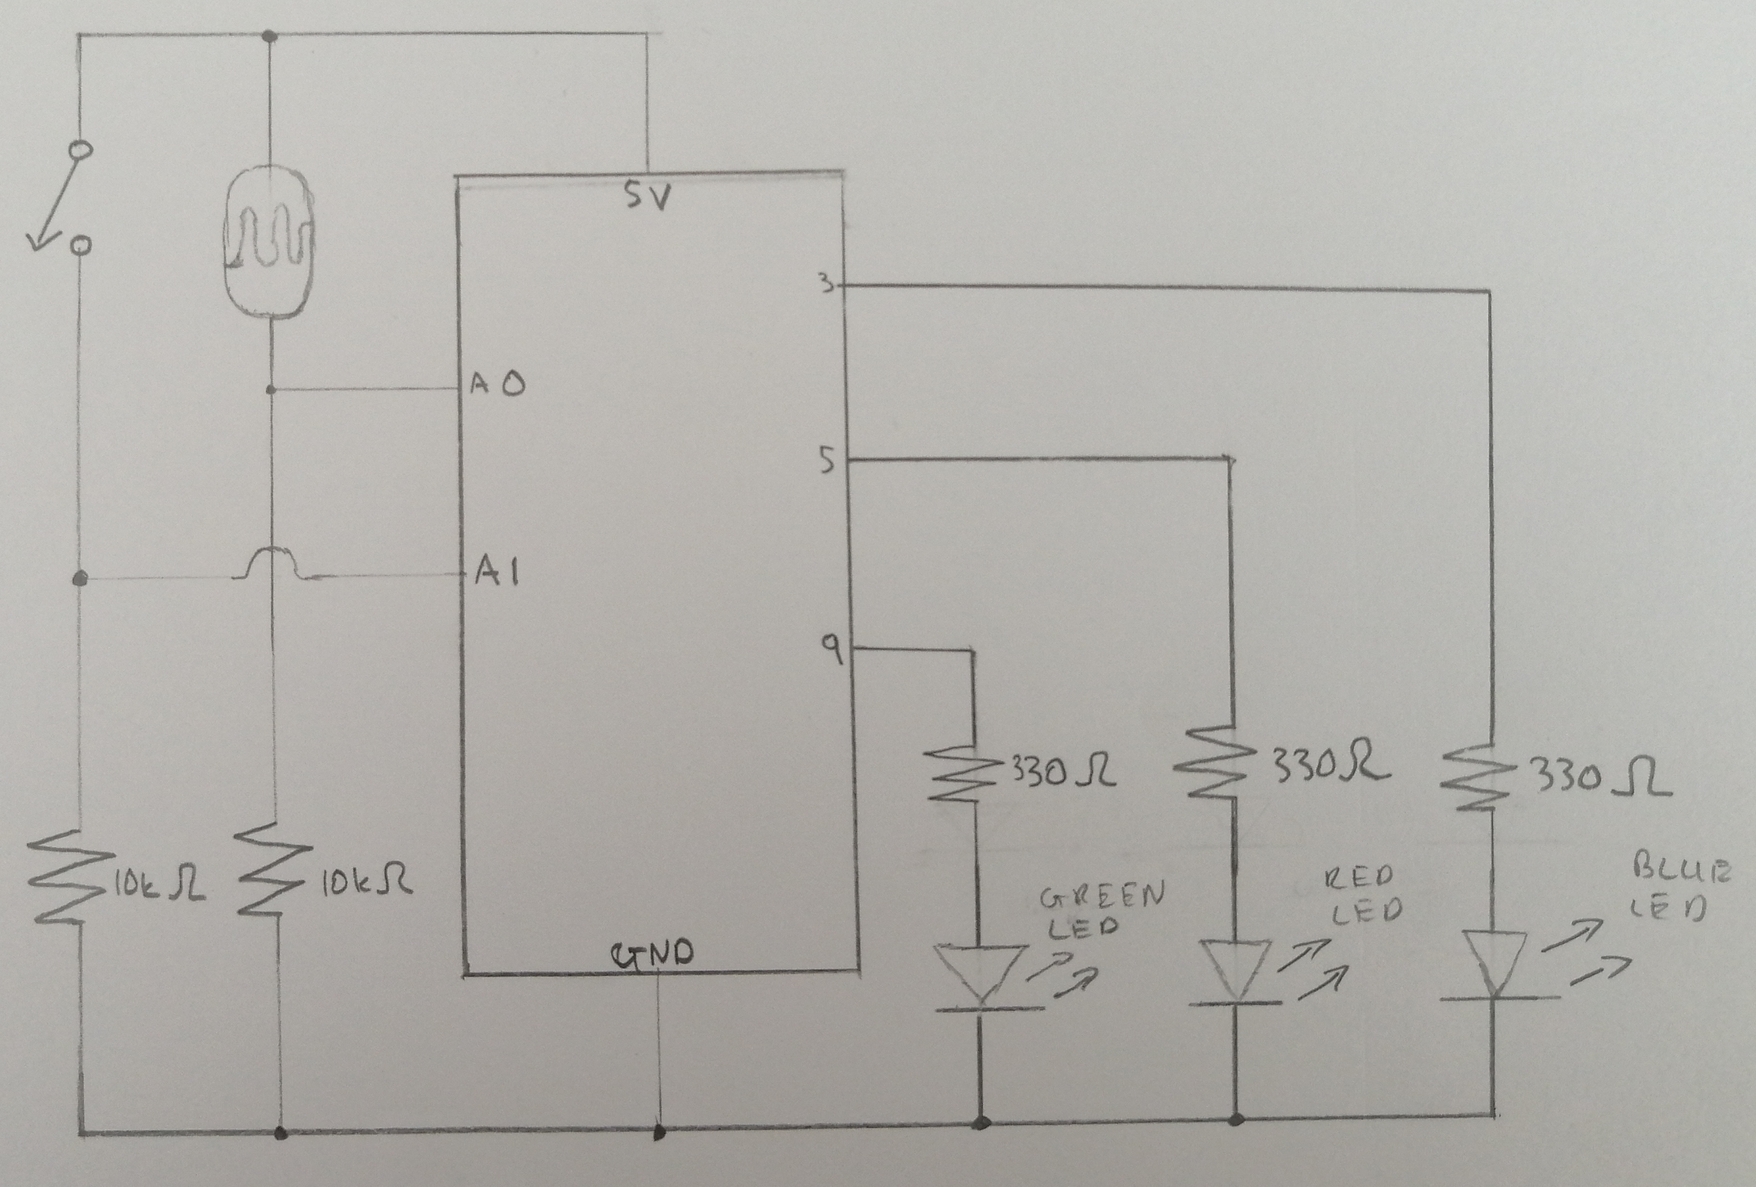 5V
3
A0
5
A1
9
330Ω
330Ω
330Ω
10kΩ
10kΩ
GREEN
LED
RED
LED
BLUE
LED
GND